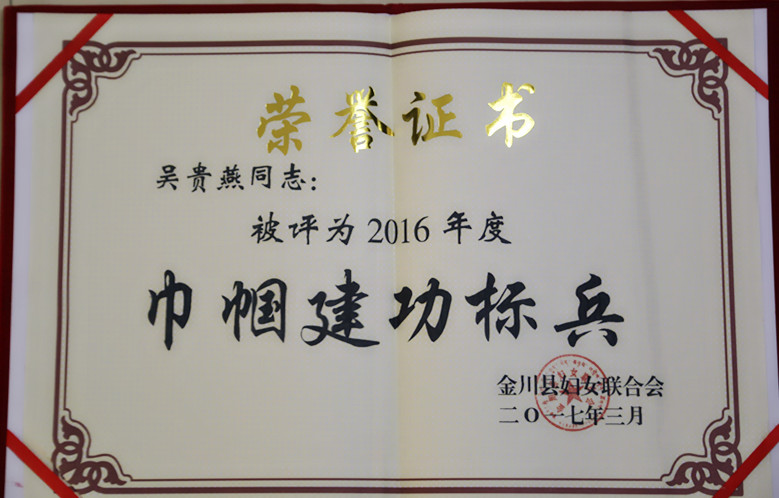 荣誉证书
吴贵燕同志：
被评为2016年度
巾帼建功标兵
金川县妇女联合会
二〇一七年三月